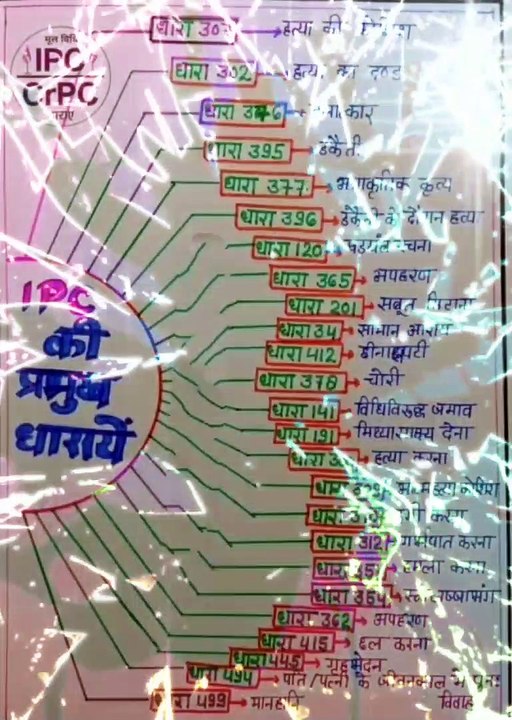 मूल विधि
IPC
CrPC
धाराएं
IPC
की
प्रमुख
धारायें
धारा 307 → हत्या की कोशिश
धारा 302 → हत्या का दण्ड
धारा 376
धारा 395 → डकैती
धारा 377 → अप्राकृतिक कृत्य
धारा 396 → डकैती के दौरान हत्या
धारा 120 → षडयंत्र रचना
धारा 365 → अपहरण
धारा 201 → सबूत मिटाना
धारा 34 → सामान आशय
धारा 412 → छीनाझपटी
धारा 378 → चोरी
धारा 141 → विधिविरुद्ध जमाव
धारा 191 → मिथ्या साक्ष्य देना
धारा → हत्या करना
धारा
धारा करना
धारा 312 → गर्भपात करना
धारा 351 → हमला करना
धारा 354 → स्त्री लज्जाभंग
धारा 362 → अपहरण
धारा 415 → छल करना
धारा 445 → गृहभेदन
धारा 494 → पति/पत्नी के जीवनकाल में पुनः
विवाह
धारा 499 → मानहानि